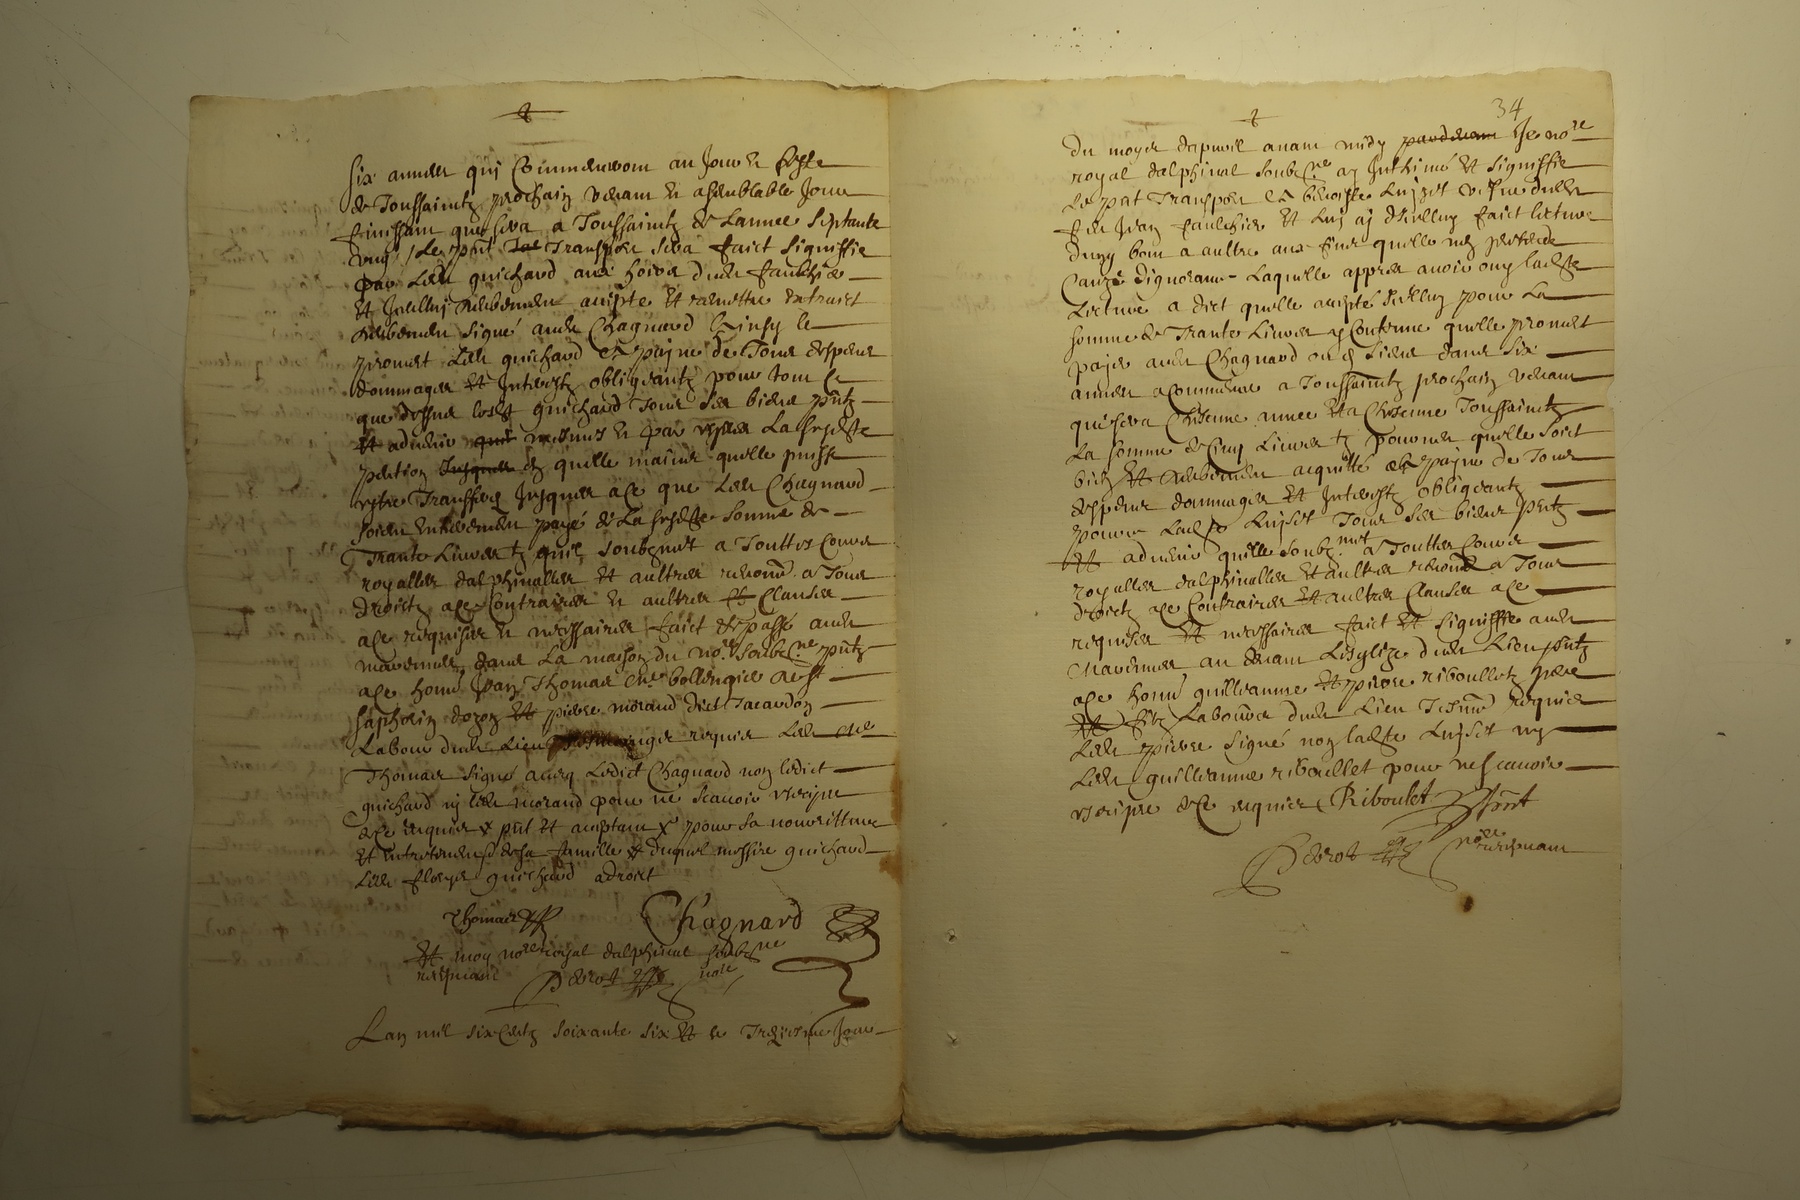 six annees qui Commenceront au Jour et feste
de Toussainctz prochain venant et a semblable Jour
finissant que sera a Toussainctz de Lannee septante
ung / Le pnt Transport sera faict signiffie
par Led guichard aux hoirs dud faulchier
et Jcelluy deubement accepte et remettre extraict
deubement signé aud Chagnard Lainsy le
promect Led guichard a payne de Tous despens
dommages et Jnterestz obligeantz pour tout ce
que dessus lesd guichard Tous ses biens pntz
et advenir mesmes et par expres La susdte
pention en quelle mains quelle puisse
estre Transferee Jusques a ce que Led Chagnard
soict entierement payé de La susdte somme de
Trante Livres tz quil soubzmet a Touttes Cours
royalles dalphinalles et aultres renonce a Tous
droictz a ce Contraires et aultres Clauses
a ce requises et necessaires faict et passé aud
marennes dans La maison du nore soubzne pntz
a ce honn Jean Thomas me bollengier de st
saphorin dozon et pierre morand dict Tacardon
Labour dud Lieu requis Led
Thomas signé avecq Ledict Chagnard non ledict
guichard ny led morand pour ne scavoir escripre
de ce requis x pnt et acceptant x pour sa nourritture
et entretenement de sa famille x duquel messire guichard
Led guichard a droict
Thomas Chagnard
et moy nore royal dalphinal soubzne
recepvant nore
Lan mil six centz soixante six et le Treziesme Jour
34
du moys dapvril avant midy Je nore
royal dalphinal soubzne ay Jnthimé et signiffie
Le pnt Transport a benoiste Luyset vefve dud
feu Jean faulchier et Luy ay dJcelluy faict lecture
dung bout a aultre aux fins quelle nen pretende
Cause dignorance Laquelle appres avoir ouy ladte
Lecture a dict quelle accepte Jcelluy pour La
somme de Trante Livres y Contenue quelle promect
payer aud Chagnard ou es siens dans six
annees a commencer a Toussainctz prochain venant
que sera Chacune annee et a Chacune Toussainctz
La somme de Cinq Livres tz pourveu quelle soict
bien et deubement acquitté a payne de Tous
despens dommages et Jnterestz obligeantz
pource Ladte Luyset Tous ses biens pntz
et advenir quelle soubzmet a Touttes Cours
royalles dalphinalles et aultres renonce a Tous
droictz a ce Contraires et aultres Clauses a ce
requises et necessaires faict et signiffie aud
Marennes au devant Lesglize dud Lieu pntz
a ce honn guillaume et pierre riboulletz pere
et filz Laboures dud Lieu Tesmoins requis
Led pierre signé non ladte Luyset ny
Led guillaume riboullet pour ne scavoir
escripre de ce requis Riboulet pnt
nore recepvant